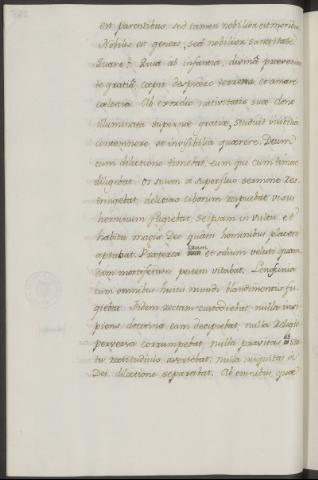 est parentibus, sed tamen nobilior est moribus
Nobilis ex genere, sed nobilior sanctitate
Quare? Quia ab infantia, divina præveniente
te gratia cœpit despicere terrena, et amare
cœlestia. Ab exordio nativitatis suæ dono
illuminata supernæ gratiæ, studuit visibilia
contemnere, et invisibilia quærere. Deum
cum dilectione timebat, eum que cum timore
diligebat. Os suum a superfluo sermone res-
tringebat, delicias ciborum respuebat, visus
hominum fugiebat, se ipsam in vultu et
habitu magis Deo quam hominibus placere
aptabat. Præterea iram et odium veluti quan-
dam mortiferam pestem vitabat. Lenocinia
cum omnibus huius mundi blandimentis fu-
giebat. Fidem rectam custodiebat, nulla insi-
piens doctrina eam decipiebat, nulla Religio
perversa corrumpebat, nulla pravitas
tu rectitudinis avertebat, nulla iniquitas a
Dei dilectione separabat. Ab omnibus, quæ